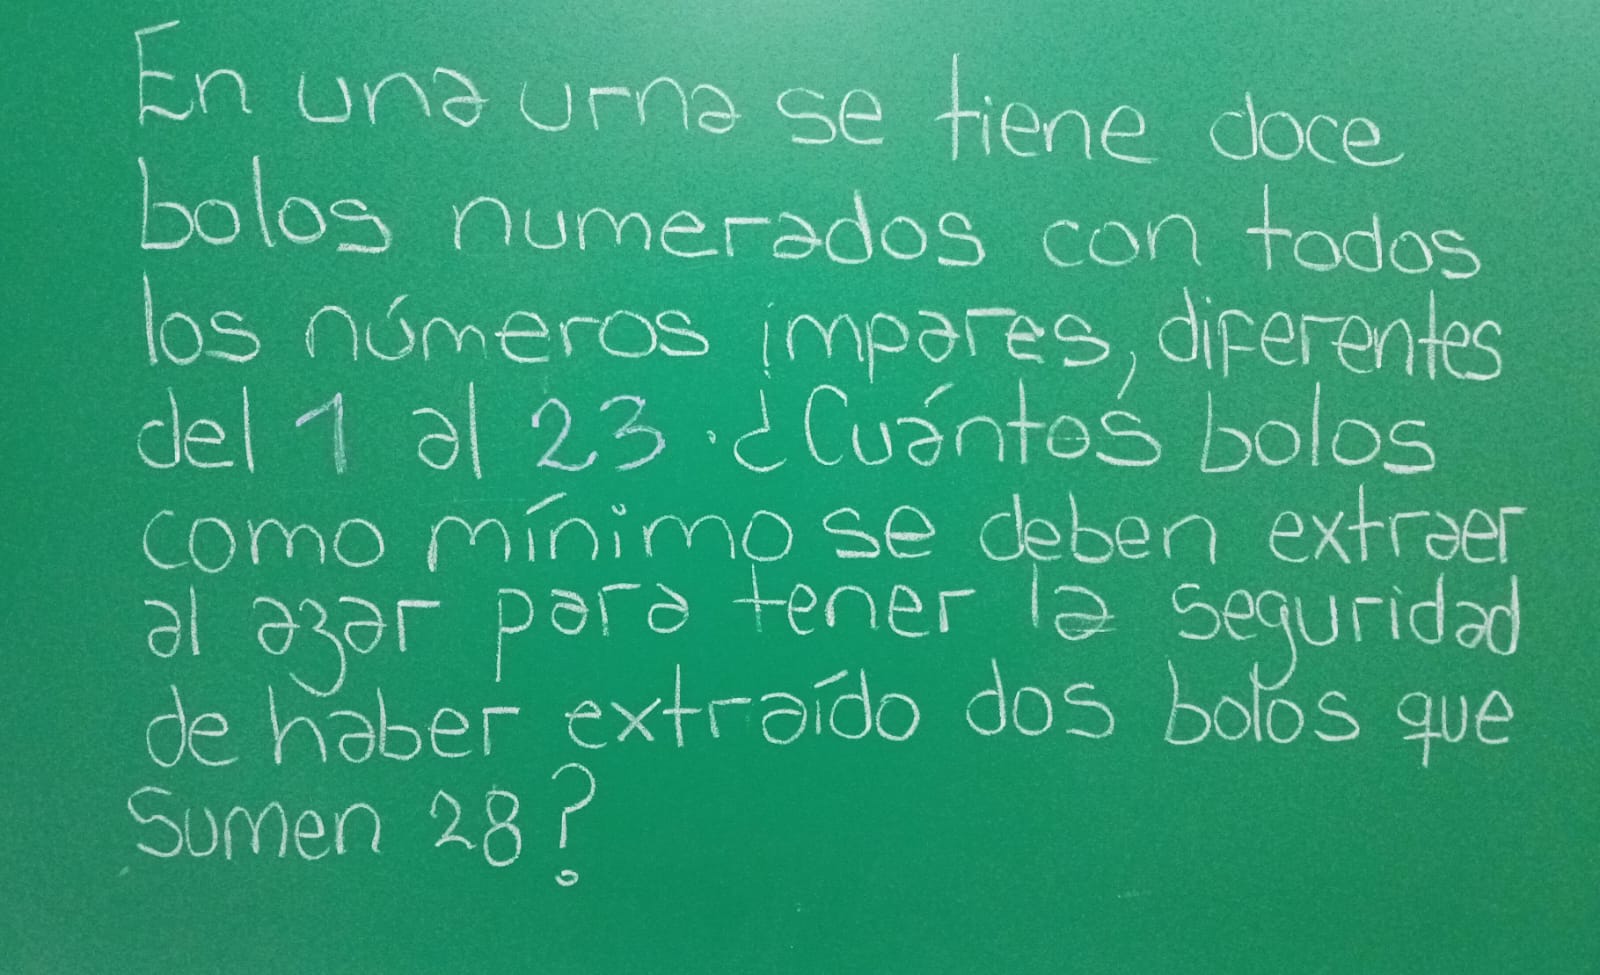 En una urna se tiene doce
bolos numerados con todos
los números impares, diferentes
del 1 al 23. ¿Cuántos bolos
como mínimo se deben extraer
al azar para tener la seguridad
de haber extraído dos bolos que
Sumen 28?